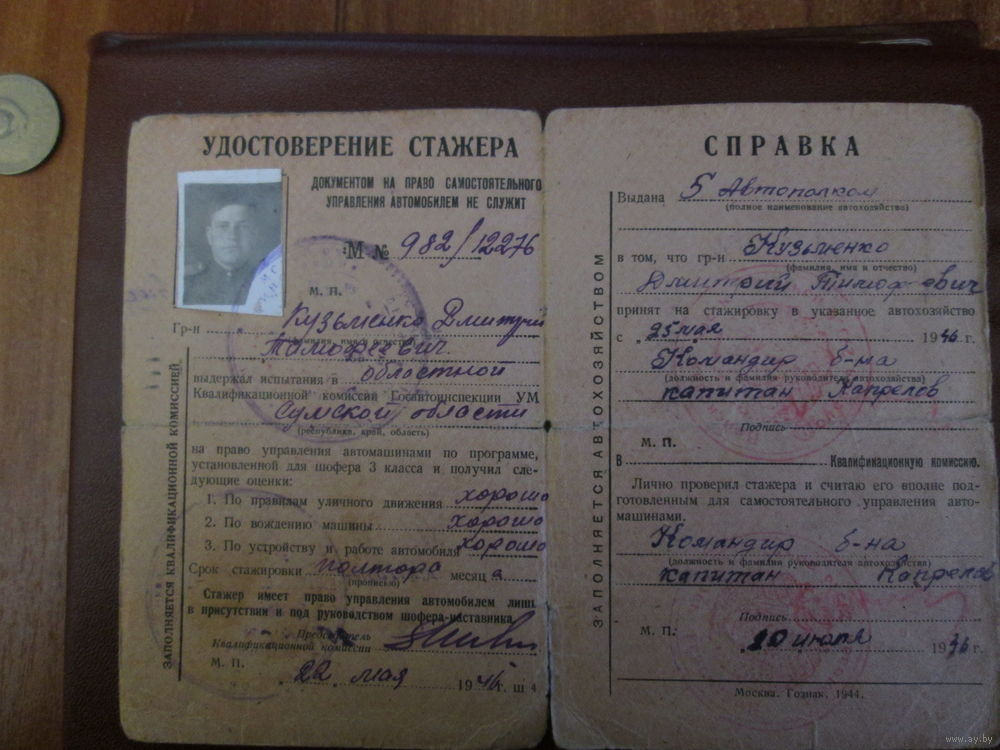 УДОСТОВЕРЕНИЕ СТАЖЕРА
ДОКУМЕНТОМ НА ПРАВО САМОСТОЯТЕЛЬНОГО
УПРАВЛЕНИЯ АВТОМОБИЛЕМ НЕ СЛУЖИТ
М № 982/12276
М. П.
Гр-н Кузьменко Дмитрий
(фамилия, имя и отчество)
Тимофеевич
выдержал испытания в областной
Квалификационной комиссии Госавтоинспекции УМ
Сумской области
(республика, край, область)
на право управления автомашинами по программе,
установленной для шофера 3 класса и получил сле-
дующие оценки:
1. По правилам уличного движения хорошо
2. По вождению машины хорошо
3. По устройству и работе автомобиля хорошо
Срок стажировки полтора месяца
(прописью)
Стажер имеет право управления автомобилем лишь
в присутствии и под руководством шофера-наставника.
Председатель
Квалификационной комиссии
М. П.
„22 мая 1946 г.
ЗАПОЛНЯЕТСЯ КВАЛИФИКАЦИОННОЙ КОМИССИЕЙ
СПРАВКА
Выдана 5 Автополком
(полное наименование автохозяйства)
в том, что гр-н Кузьменко
(фамилия, имя и отчество)
Дмитрий Тимофеевич
принят на стажировку в указанное автохозяйство
с „25 мая 1946 г.
Командир б-на
(должность и фамилия руководителя автохозяйства)
капитан Капрелов
Подпись
М. П.
В Квалификационную комиссию.
Лично проверил стажера и считаю его вполне под-
готовленным для самостоятельного управления авто-
машинами.
Командир б-на
(должность и фамилия руководителя автохозяйства)
капитан Капрелов
Подпись
М. П.
„10 июля 1946 г.
Москва. Гознак. 1944.
ЗАПОЛНЯЕТСЯ АВТОХОЗЯЙСТВОМ
www.ay.by